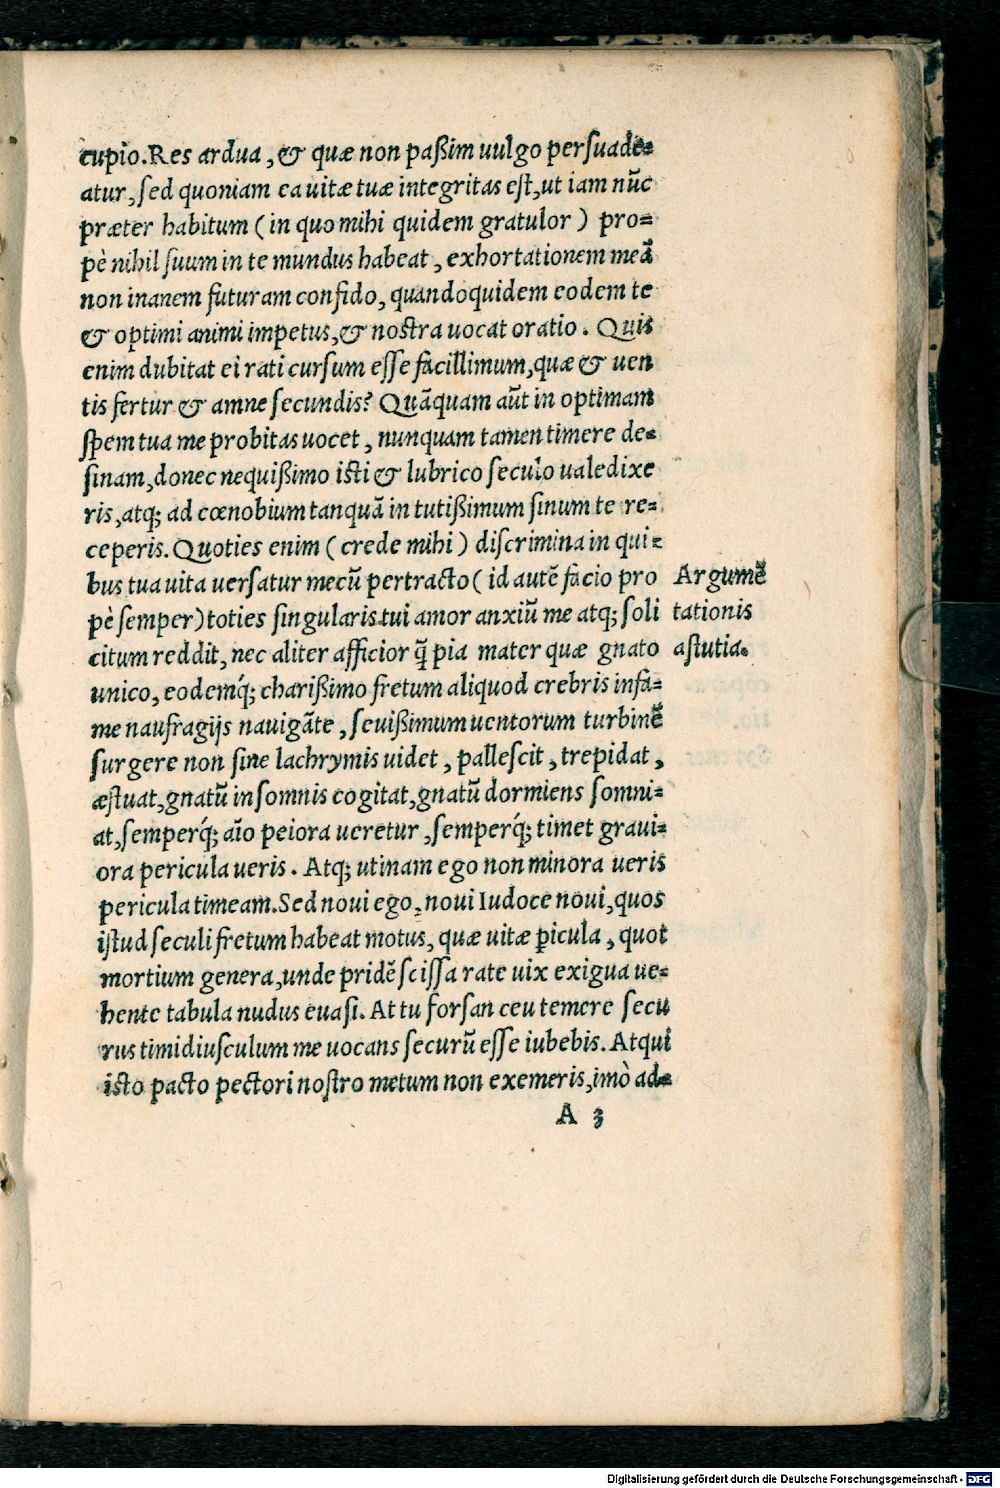 cupio. Res ardua, & quæ non paßim uulgo persuade=
atur, sed quoniam ea uitæ tuæ integritas est, ut iam nūc
præter habitum ( in quo mihi quidem gratulor ) pro=
pè nihil suum in te mundus habeat, exhortationem meā
non inanem futuram confido, quandoquidem eodem te
& optimi animi impetus, & nostra uocat oratio. Quis
enim dubitat ei rati cursum esse facillimum, quæ & uen
tis fertur & amne secundis? Quāquam aūt in optimam
spem tua me probitas uocet, nunquam tamen timere de=
sinam, donec nequißimo isti & lubrico seculo ualedixe
ris, atq; ad cœnobium tanquā in tutißimum sinum te re=
ceperis. Quoties enim ( crede mihi ) discrimina in qui=
bus tua uita uersatur mecū pertracto ( id autē facio pro
pè semper) toties singularis tui amor anxiū me atq; soli
citum reddit, nec aliter afficior q̄ pia mater quæ gnato
unico, eodemq́; charißimo fretum aliquod crebris infa=
me naufragijs nauigāte, seuißimum uentorum turbinē
surgere non sine lachrymis uidet, pallescit, trepidat,
æstuat, gnatū insomnis cogitat, gnatū dormiens somni=
at, semperq́; aīo peiora ueretur, semperq́; timet graui=
ora pericula ueris. Atq; utinam ego non minora ueris
pericula timeam. Sed noui ego, noui Iudoce noui, quos
istud seculi fretum habeat motus, quæ uitæ ꝑicula, quot
mortium genera, unde pridē scissa rate uix exigua ue=
hente tabula nudus euasi. At tu forsan ceu temere secu
rus timidiusculum me uocans securū esse iubebis. Atqui
isto pacto pectori nostro metum non exemeris, imò ad=
A 3
Argumē
tationis
astutia.
Digitalisierung gefördert durch die Deutsche Forschungsgemeinschaft - DFG